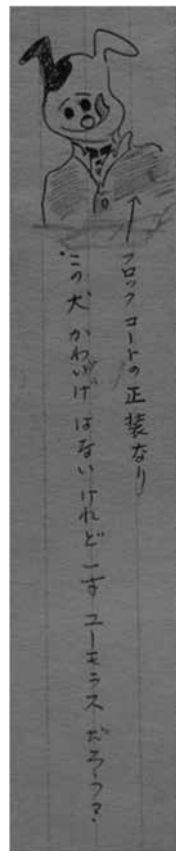 フロックコートの正装なり
この犬かわいげはないけれど一寸ユーモラスだろう?